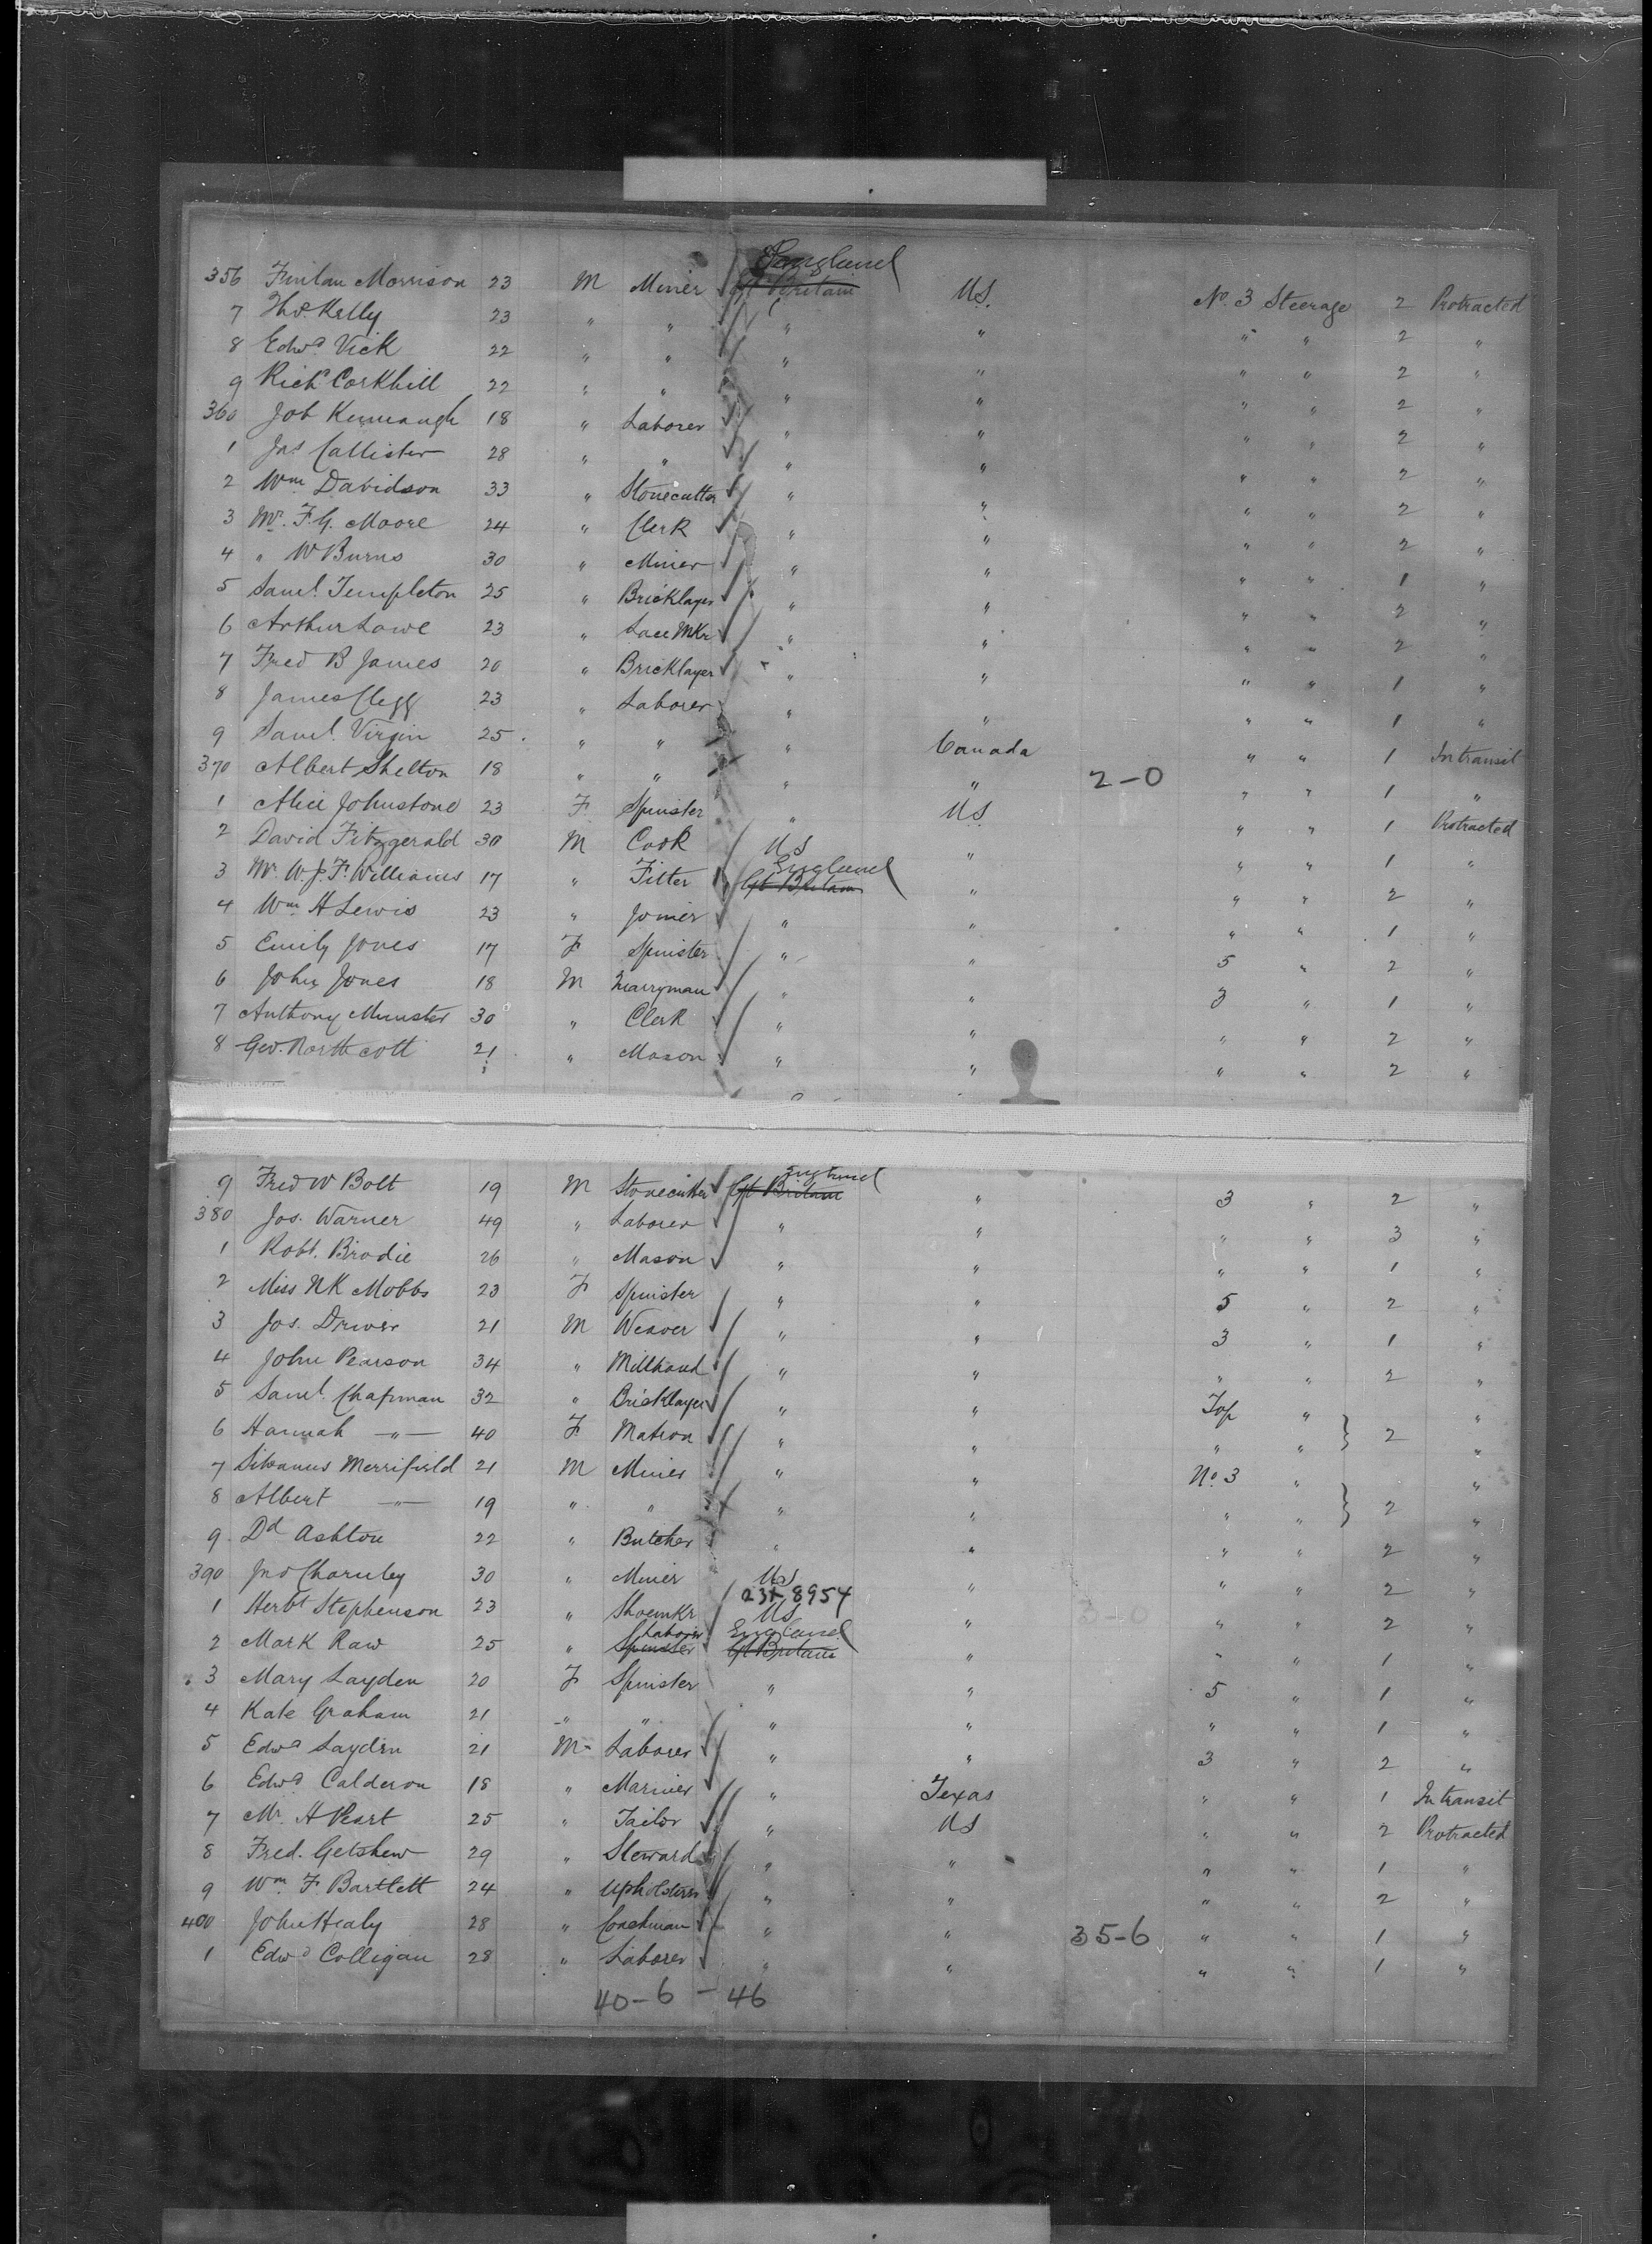 356 Finlan Morrison 23 M Miner England Gt Britain U.S. No. 3 Steerage 2 Protracted
7 Thos. Kelly 23 " " " " " " 2 "
8 Edwd Vick 22 " " " " " " 2 "
9 Richd Corkhill 22 " " " " " " 2 "
360 Job Kinnaugh 18 " Laborer " " " " 2 "
1 Jas Callister 28 " " " " " " 2 "
2 Wm Davidson 33 " Stonecutter " " " " 2 "
3 Mr. F.G. Moore 24 " Clerk " " " " 2 "
4 " W Burns 30 " Miner " " " " 1 "
5 Saml. Templeton 25 " Bricklayer " " " " 2 "
6 Arthur Lowe 23 " Lace Mkr " " " " 2 "
7 Fred B James 20 " Bricklayer " " " " 1 "
8 James Clegg 23 " Laborer " " " " 1 "
9 Saml. Virgin 25 " " " Canada " " 1 Intransit
370 Albert Shelton 18 " " " " 2-0 " " 1 "
1 Alice Johnstone 23 F Spinster " U.S. " " 1 Protracted
2 David Fitzgerald 30 M Cook US " " " 1 "
3 Mr. W.J.F. Williams 17 " Fitter England Gt Britain " " " 2 "
4 Wm H Lewis 23 " Joiner " " " " 1 "
5 Emily Jones 17 F Spinster " " 5 " 2 "
6 John Jones 18 M Quarryman " " 3 " 1 "
7 Anthony Munster 30 " Clerk " " " " 2 "
8 Geo. Northcott 21 " Mason " " " " 2 "
9 Fred W Bolt 19 M Stonecutter England Gt Britain " 3 " 2 "
380 Jos. Warner 49 " Laborer " " " " 3 "
1 Robt. Brodie 26 " Mason " " " " 1 "
2 Miss NK Mobbs 23 F Spinster " " 5 " 2 "
3 Jos. Driver 21 M Weaver " " 3 " 1 "
4 John Pearson 34 " Millhand " " " " 2 "
5 Saml. Chapman 32 " Bricklayer " " Top " "
6 Hannah —"— 40 F Matron " " " " } 2 "
7 Silvanus Merrifield 21 M Miner " " No. 3 " "
8 Albert —"— 19 " " " " " " } 2 "
9 Dd Ashton 22 " Butcher " " " " 2 "
390 Jno Charnley 30 " Miner US " " " 2 "
23x8954
1 Herbt Stephenson 23 " Shoemkr US " 3-0 " " 2 "
2 Mark Raw 25 " Laborer Spinster England Gt Britain " " " 1 "
3 Mary Layden 20 F Spinster " " 5 " 1 "
4 Kate Graham 21 " " " " " " 1 "
5 Edwd Layden 21 M Laborer " " 3 " 2 "
6 Edwd Calderon 18 " Mariner " Texas " " 1 Intransit
7 Mr. H Peart 25 " Tailor " US " " 2 Protracted
8 Fred. Getshew 29 " Steward " " " " 1 "
9 Wm F Bartlett 24 " Upholsterer " " " " 2 "
400 John Healy 28 " Coachman " " 35-6 " " 1 "
1 Edwd Colligan 28 " Laborer " " " " 1 "
40-6 - 46